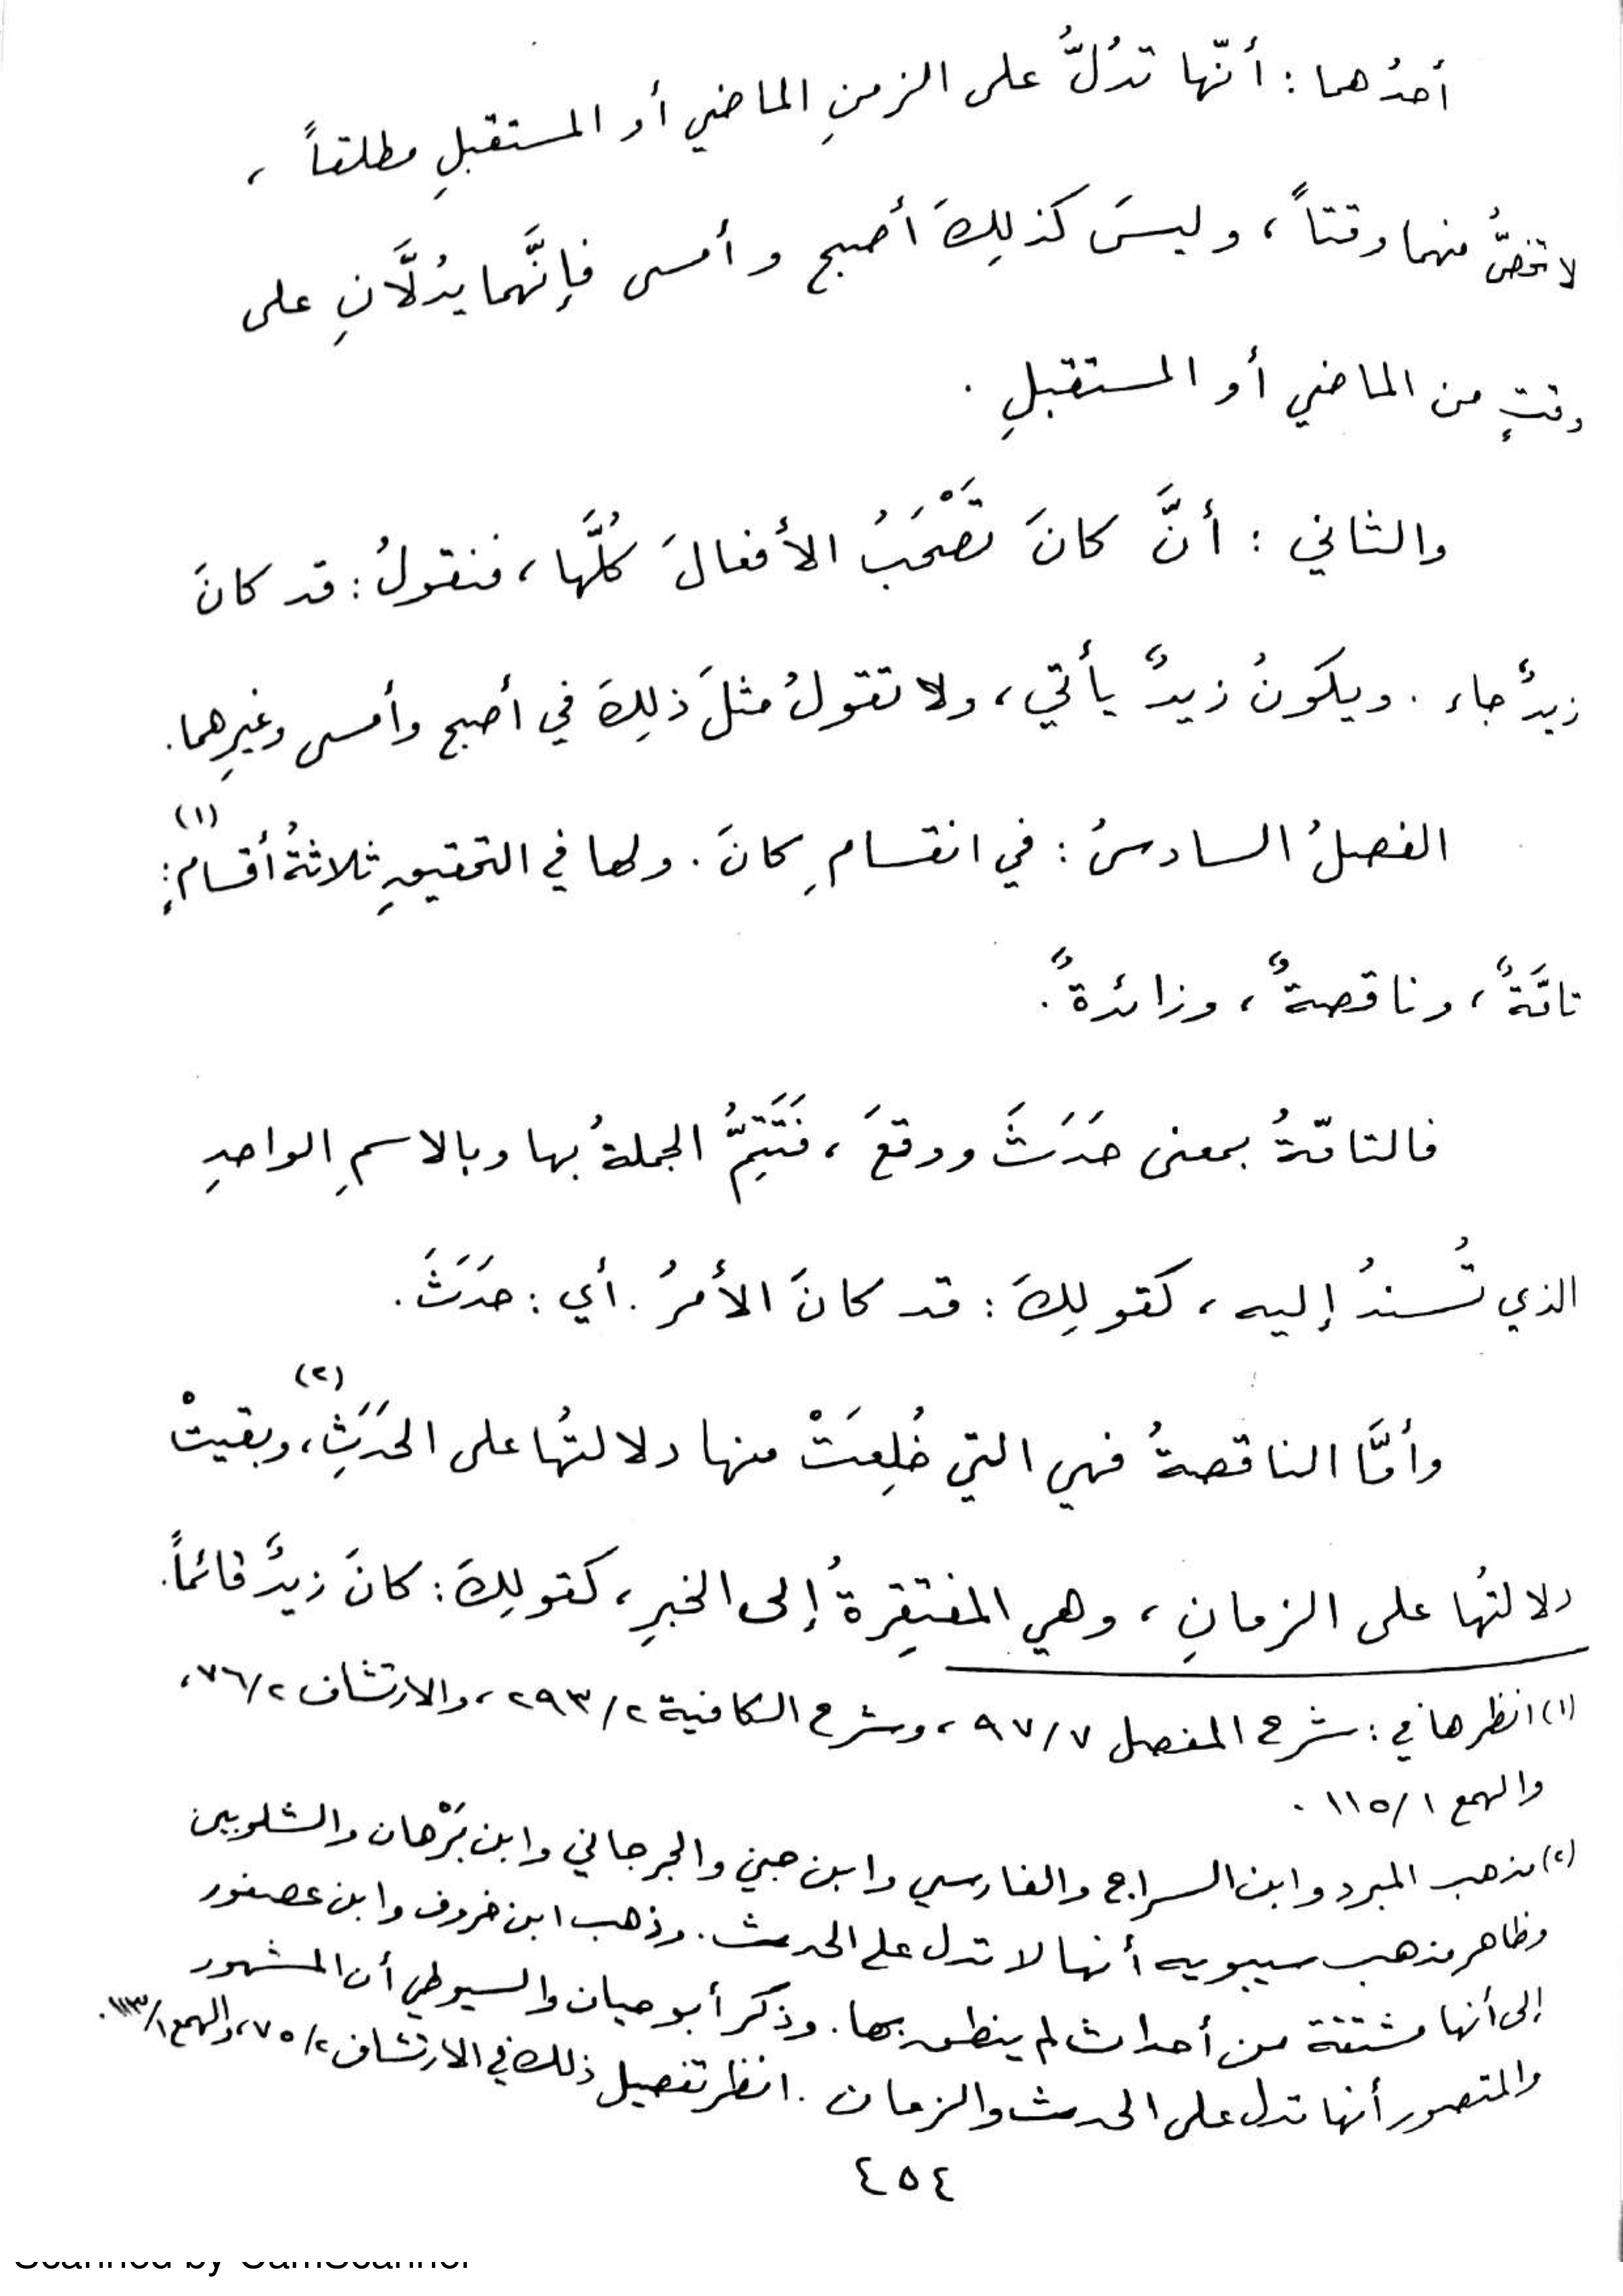 أحدُهما : أنّها تدُلُّ على الزمنِ الماضي أو المستقبلِ مطلقاً ،
لا تخصُّ منهما وقتاً ، وليسَ كذلِكَ أصبح وأمسى فإنَّهما يدُلَّانِ على
وقتٍ من الماضي أو المستقبلِ .
والثاني : أنَّ كانَ تَصْحَبُ الأفعالَ كُلَّها ، فنقولُ : قد كانَ
زيدٌ جاء . ويكونُ زيدٌ يأتي ، ولا تقولُ مثلَ ذلِكَ في أصبح وأمسى وغيرِهما .
الفصلُ السادسُ : في انقسامِ كانَ . ولها في التحقيقِ ثلاثةُ أقسامٍ (١) :
تامَّةٌ ، وناقصةٌ ، وزائدةٌ .
فالتامّةُ بمعنى حَدَثَ ووقعَ ، فَتَتِمُّ الجملةُ بها وبالاسمِ الواحدِ
الذي تُسندُ إليه ، كقولِكَ : قد كانَ الأمرُ . أي : حَدَثَ .
وأمَّا الناقصةُ فهي التي خُلِعَتْ منها دلالتُها على الحَدَثِ (٢) ، وبقيتْ
دلالتُها على الزمانِ ، وهي المفتقِرةُ إلى الخبرِ ، كقولِكَ : كانَ زيدٌ قائماً .
(١) انظرها في : شرح المفصل ٩٧/٧ ، وشرح الكافية ٢٩٣/٢ ، والارتشاف ٧٦/٢ ،
والهمع ١١٥/١ .
(٢) مذهب المبرد وابن السراج والفارسي وابن جني والجرجاني وابن بَرْهان والشلوبين
وظاهر مذهب سيبويه أنها لا تدل على الحدث . وذهب ابن خروف وابن عصفور
إلى أنها مشتقة من أحداث لم ينطق بها . وذكر أبو حيان والسيوطي أن المشهور
والمتصور أنها تدل على الحدث والزمان . انظر تفصيل ذلك في الارتشاف ٧٥/٢ ، والهمع ١١٣/١ .
٤٥٤
Scanned by CamScanner